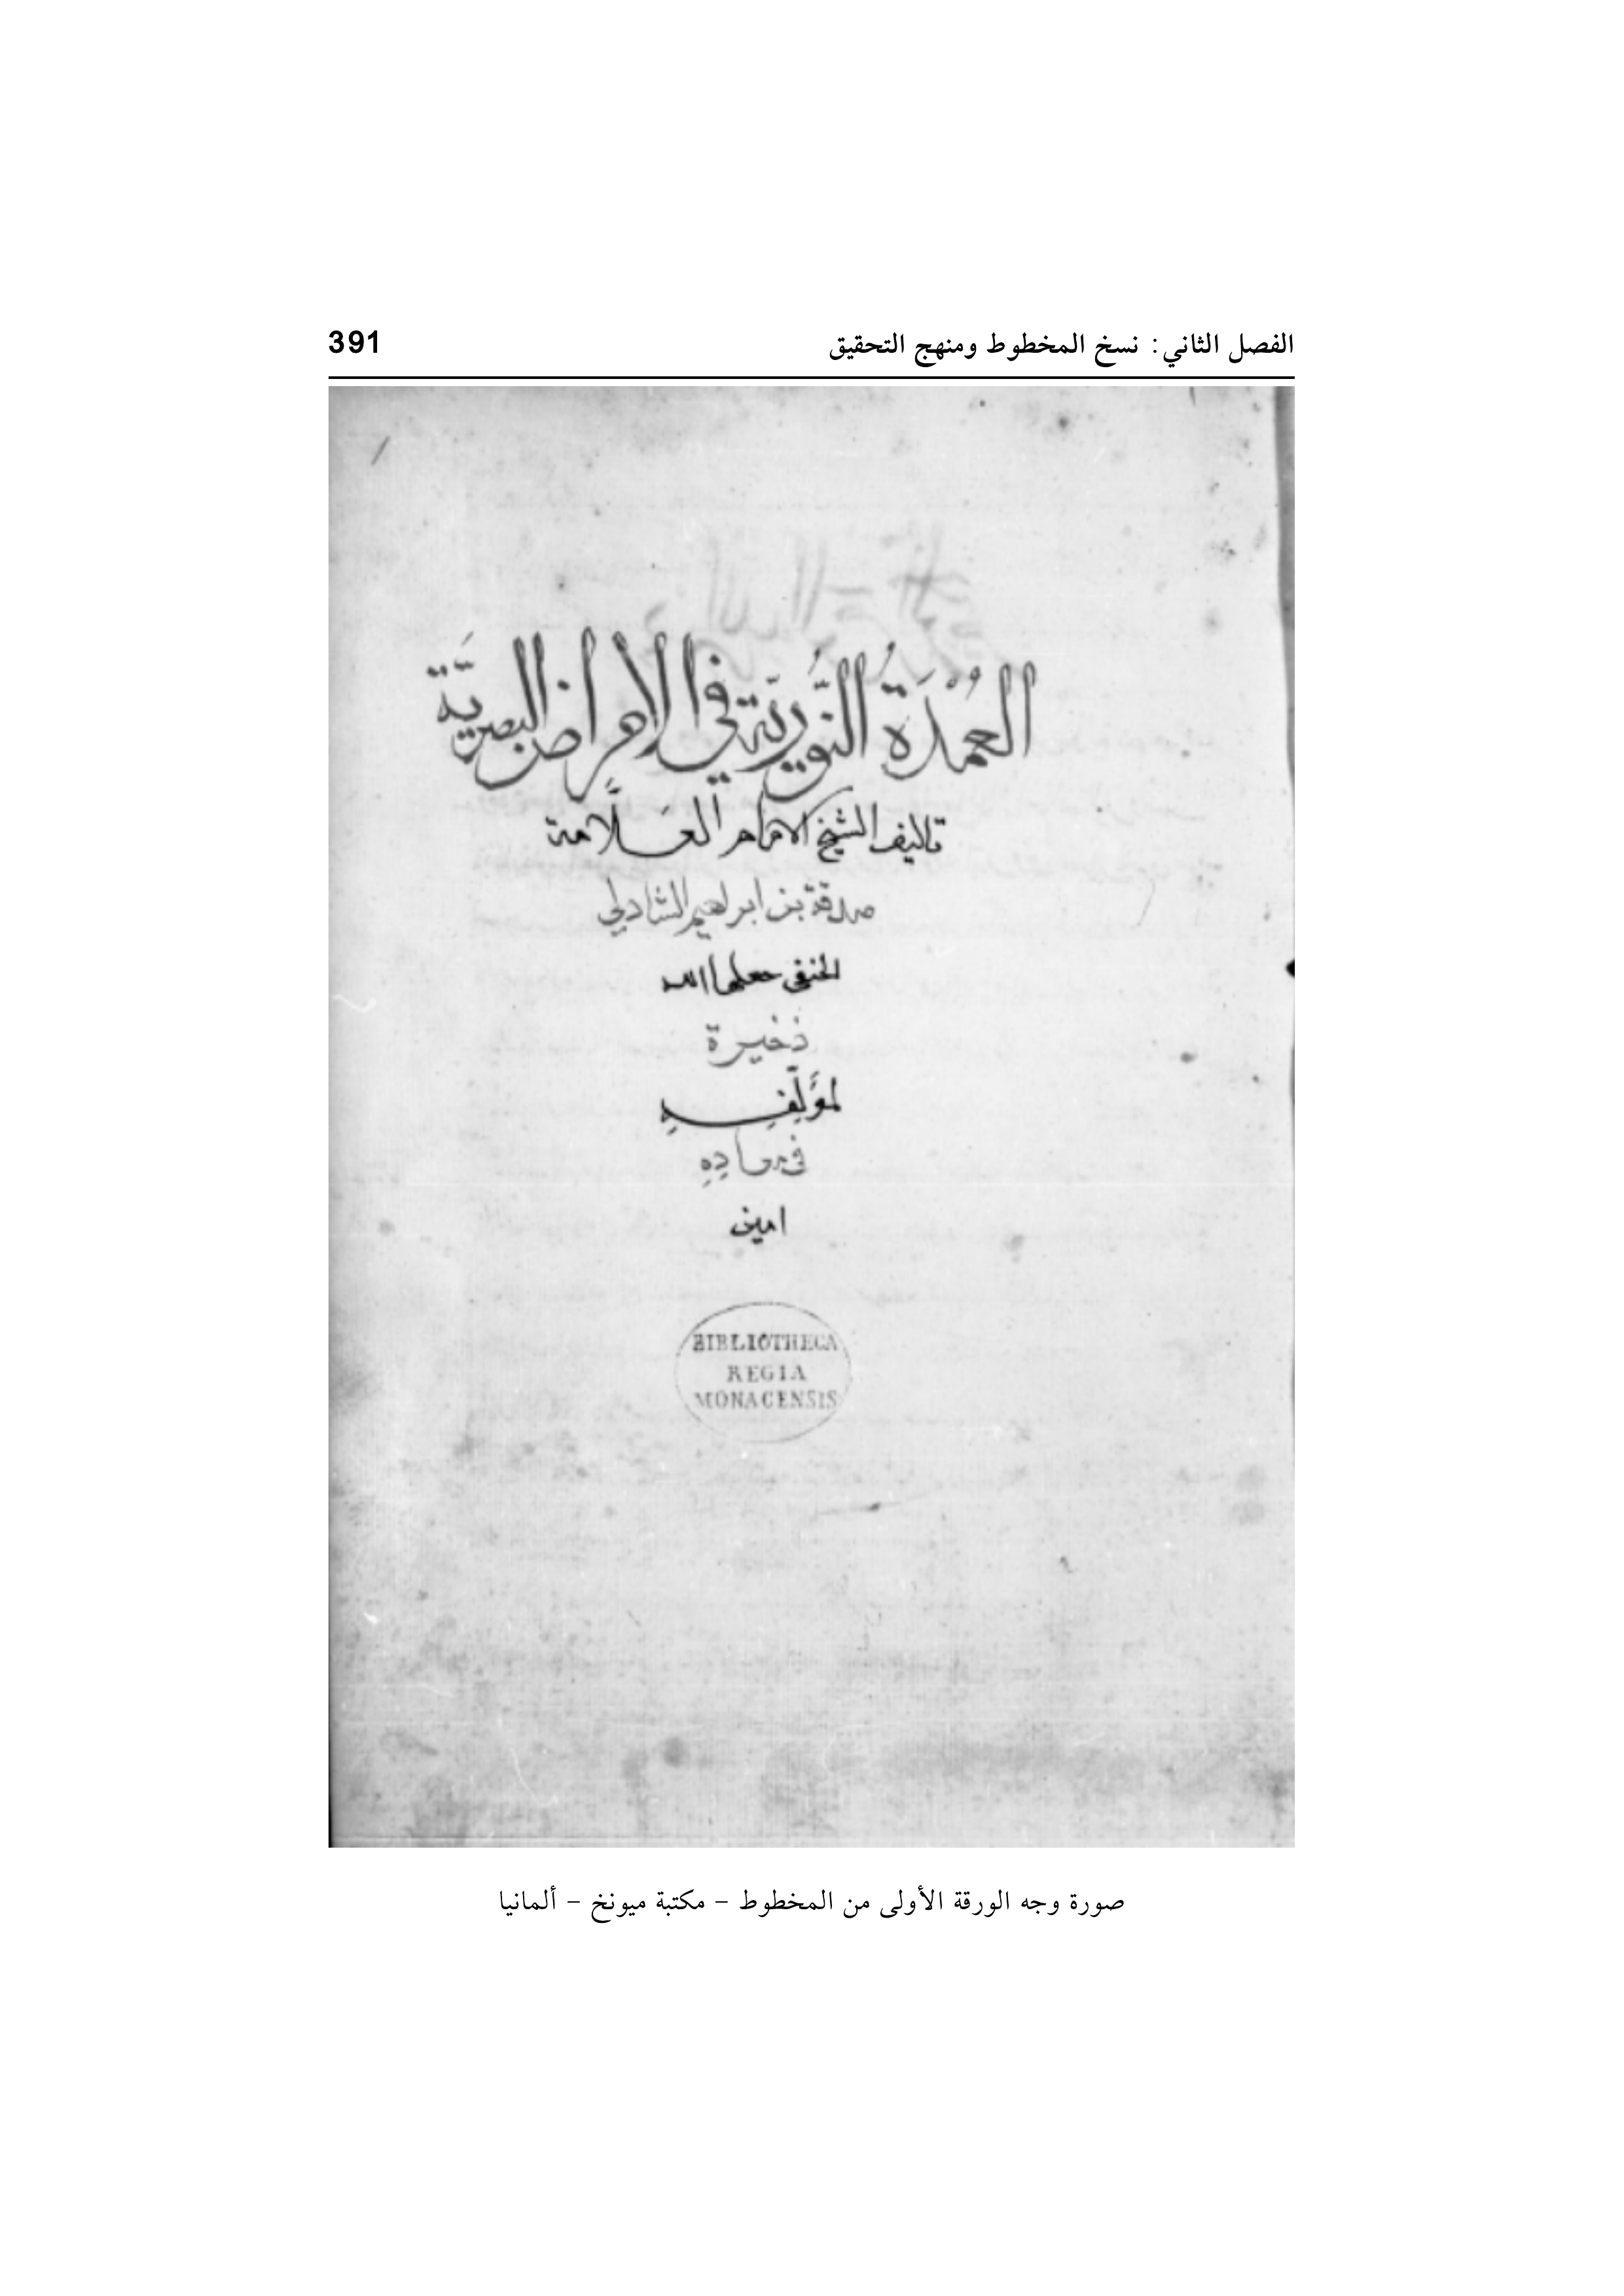 الفصل الثاني: نسخ المخطوط ومنهج التحقيق 391
العُمْدَةُ النُّورِيَّة في الامراض البصريَّة
تاليف الشيخ الامام العَلَّامة
صدقة بن ابراهيم الشادلي
الحنفي جعلها الله
ذخيرة
لمؤَلِّفِهِ
في معادِهِ
امين
BIBLIOTHECA
REGIA
MONACENSIS
صورة وجه الورقة الأولى من المخطوط – مكتبة ميونخ – ألمانيا